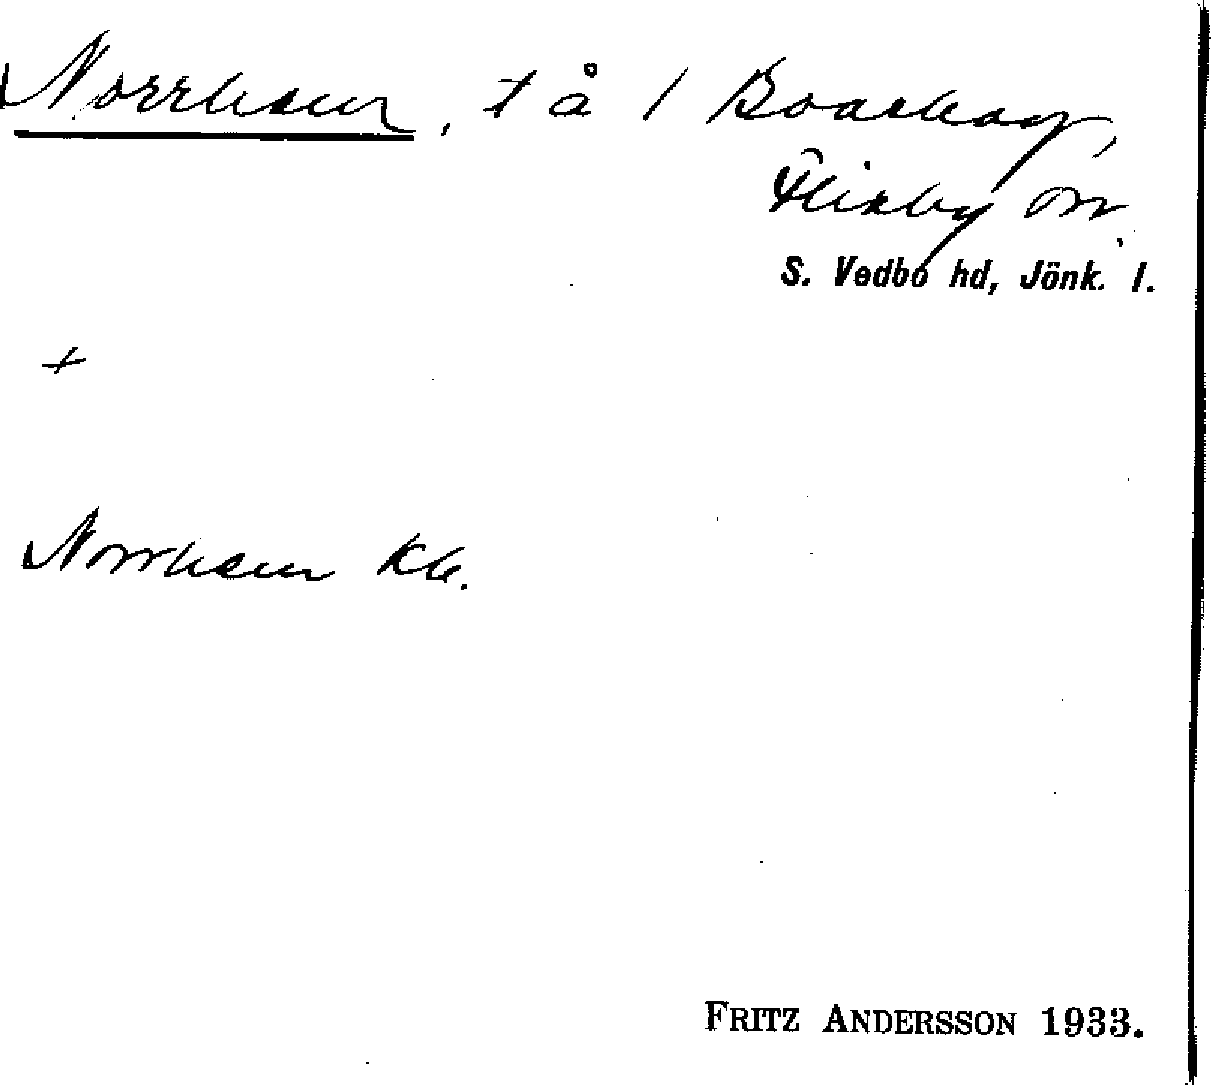 Norrhem, t å 1 Boarhag,
Flisby sn
S. Vedbo hd, Jönk. l.
+
Norrhem kb.
FRITZ ANDERSSON 1933.